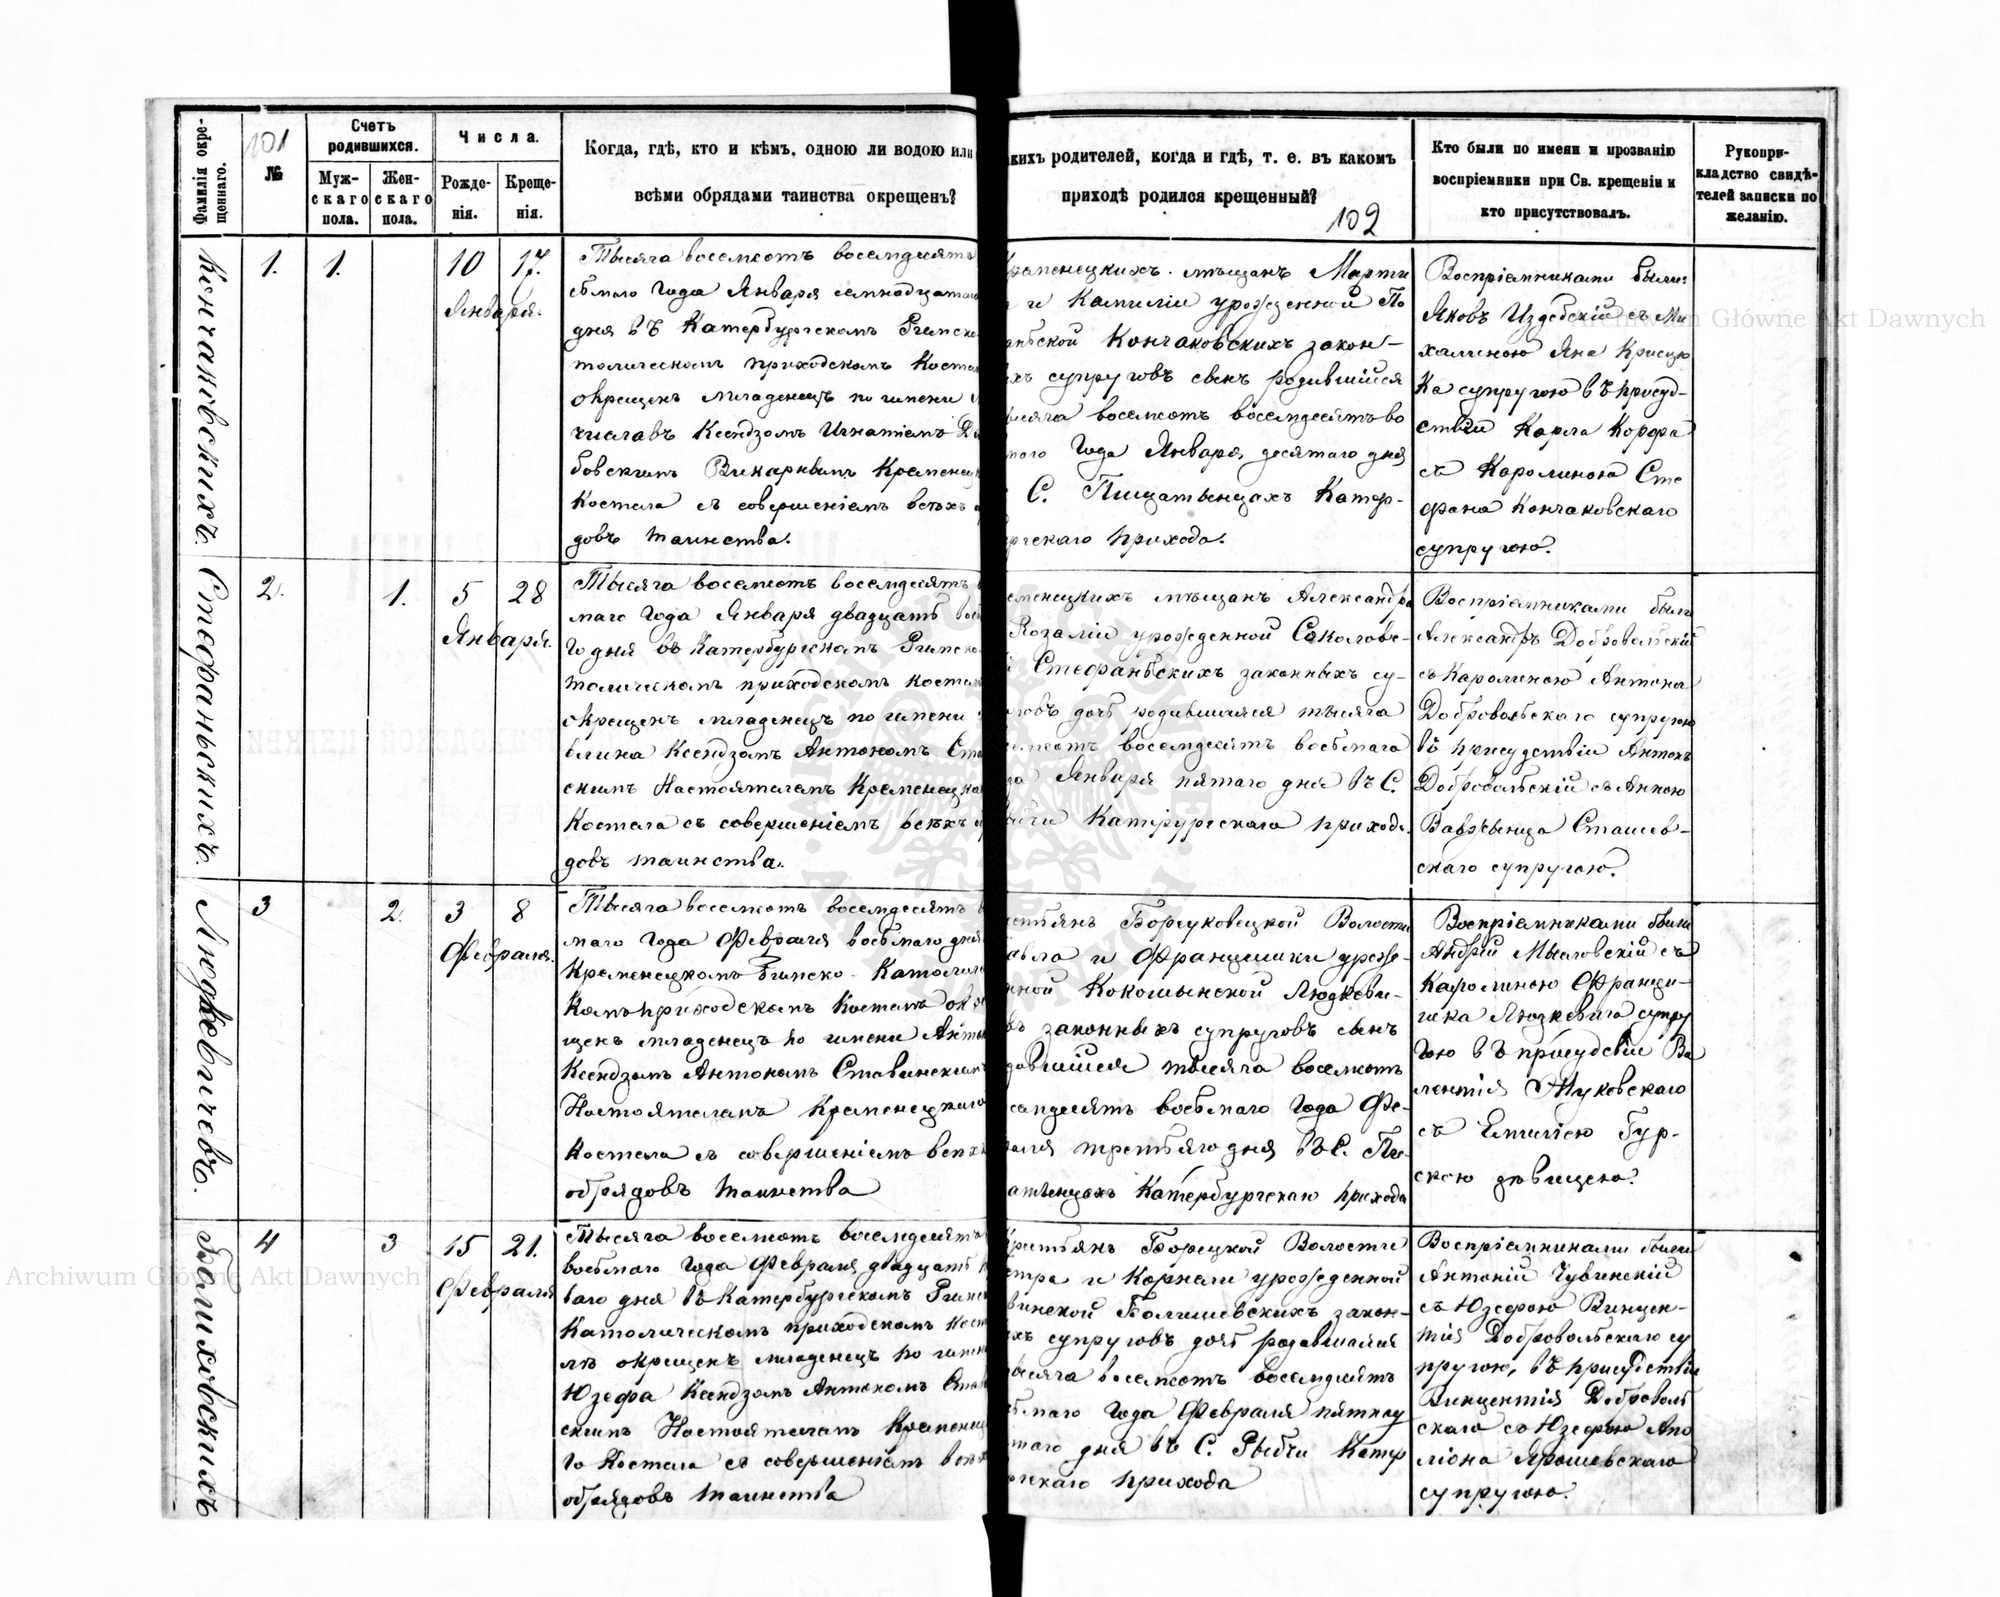 Фамилія окре-
щеннаго.
101
№
Счетъ
родившихся.
Муж-
скаго
пола.
Жен-
скаго
пола.
Числа.
Рожде-
нія.
Креще-
нія.
Когда, гдѣ, кто и кѣмъ, одною ли водою или
всѣми обрядами таинства окрещенъ?
кихъ родителей, когда и гдѣ, т. е. въ какомъ
приходѣ родился крещенный?
102
Кто были по имени и прозванію
воспріемники при Св. крещеніи и
кто присутствовалъ.
Рукопри-
кладство свидѣ-
телей записки по
желанію.
Кончаковскихъ.
1.
1.
10
17.
Января.
Тысяча восемсотъ восемдесятъ
сьмаго Года Января семнадцатаго
дня въ Катербургскомъ Римско
толическомъ приходскомъ Косте
окрещенъ младенецъ по имени
числавъ Ксендзомъ Игнатіемъ
бовскимъ Викарнымъ Кременец
Костела съ совершеніемъ всѣхъ
довъ таинства.
Кременецкихъ мѣщанъ Марти
и Камиліи урожденной По
Кончаковскихъ закон-
ыхъ супруговъ сынъ родившійся
ысяча восемсотъ восемдесятъ во
маго Года Января десятаго дня
С. Пищатынцахъ Катер-
ргскаго прихода.
Воспріемниками были:
Яковъ Издебскій съ Ми
халиною Яна
ка супругою въ присуд-
ствіи Карла Корфа
съ Каролиною Сте
фана Кончаковскаго
супругою.
Стефаньскихъ.
2.
1.
5
28
Января.
Тысяча восемсотъ восемдесятъ
маго Года Января двадцатъ вось
го дня въ Катербургскомъ Римско
толическомъ приходскомъ косте
окрещенъ младенецъ по имени
влина Ксендзомъ Антономъ Ста
скимъ Настоятелемъ Кременецка
Костела съ совершеніемъ всѣхъ
довъ таинства.
еменецкихъ мѣщанъ Александра
Розаліи урожденной Соколовс-
Стефаньскихъ законныхъ су-
говъ дочь родившаяся тысяча
емсотъ восемдесятъ восьмаго
да Января пятаго дня въ С.
Катербургскаго прихода.
Воспріемниками были
Александръ Добровольскій
съ Каролиною Антона
Добровольскаго супругою
въ присудствіи Антонъ
Добровольскій съ Анною
Вавжынца Сташев-
скаго супругою.
Людкевичевъ.
3
2.
3
8
Февраля.
Тысяча восемсотъ восемдесятъ
маго Года Февраля восьмаго дня
Кременецкомъ Римско-Католиче
комъ приходскомъ Костелѣ окре
щенъ младенецъ по имени Анто
Ксендзомъ Антономъ Ставинскимъ
Настоятелемъ Кременецкаго
Костела съ совершеніемъ всѣхъ
обрядовъ таинства
естьянъ Борсуковецкой Волости
авла и Францишки урожде-
нной Кокошынской Людкеви-
въ законныхъ супруговъ сынъ
давшійся тысяча восемсотъ
семдесятъ восьмаго Года Фе-
раля третьяго дня въ С. Пи-
атынцахъ Катербургскаго прихода
Воспріемниками были
Андрей Мысловскій съ
Каролиною Францы-
шка Людкевича супру
гою въ присудсвіи Ва
лентія Жуковскаго
съ Емиліею Гур-
скою дѣвицею.
Балиховскихъ
4
3
15
21.
Февраля
Тысяча восемсотъ восемдесятъ
восьмаго Года Февраля двадцать
ваго дня въ Катербургскомъ Римск
Католическомъ приходскомъ Кост
лѣ окрещенъ младенецъ по имен
Юзефа Ксендзомъ Антономъ Став
скимъ Настоятелемъ Кременец
го Костела съ совершеніемъ всѣх
обрядовъ таинства
Крестьянъ Борецкой Волости
етра и Корнели урожденной
винской законн-
ыхъ супруговъ дочь родавшаяся
ысяча восемсотъ восемдесятъ
сьмаго Года Февраля пятнад
таго дня въ С. Рыбчи Катер
ргскаго прихода
Воспріемниками были
Антоній Чувинскій
съ Юзефою Винцен-
тія Добровольскаго су
пругою, въ присудствіи
Винцентія Доброволь
скаго съ Юзефою Апо
лiона Ярошевскаго
супругою.
Archiwum Główne Akt Dawnych
Archiwum Główne Akt Dawnych